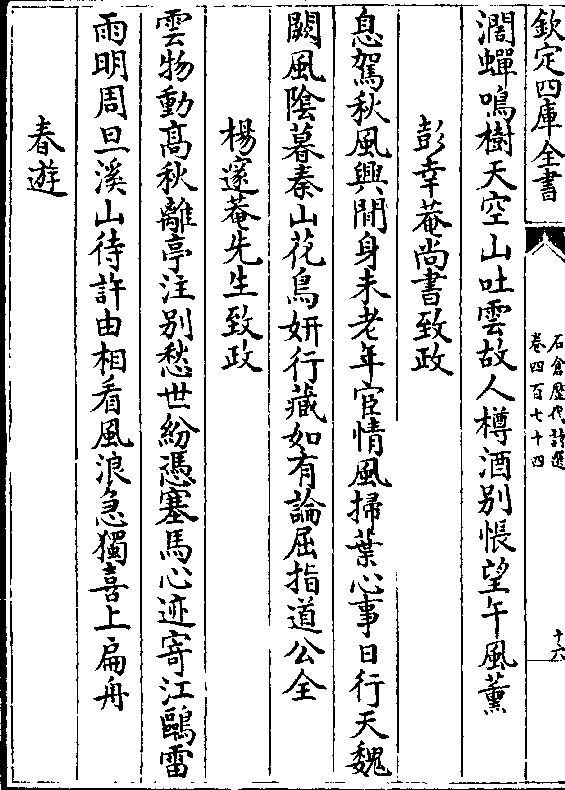 欽定四庫全書
石倉歷代詩選
卷四百七十四
十六
濶蟬鳴樹天空山吐雲故人樽酒别悵望午風薰
彭幸菴尚書致政
息駕秋風興閒身未老年宦情風掃葉心事日行天魏
闕風隂暮秦山花鳥妍行藏如有論屈指道公全
楊邃菴先生致政
雲物動髙秋離亭注别愁世紛憑塞馬心迹寄江鷗雷
雨明周旦溪山待許由相看風浪急獨喜上扁舟
春遊